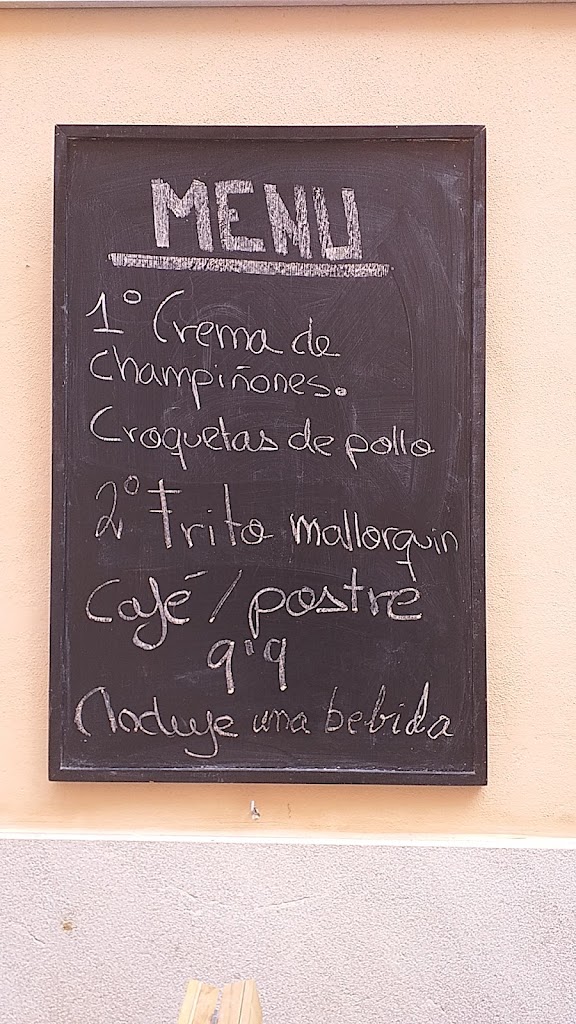 MENU
1º Crema de
champiñones.
Croquetas de pollo
2º Frito mallorquin
Café / postre
9'9
una bebida